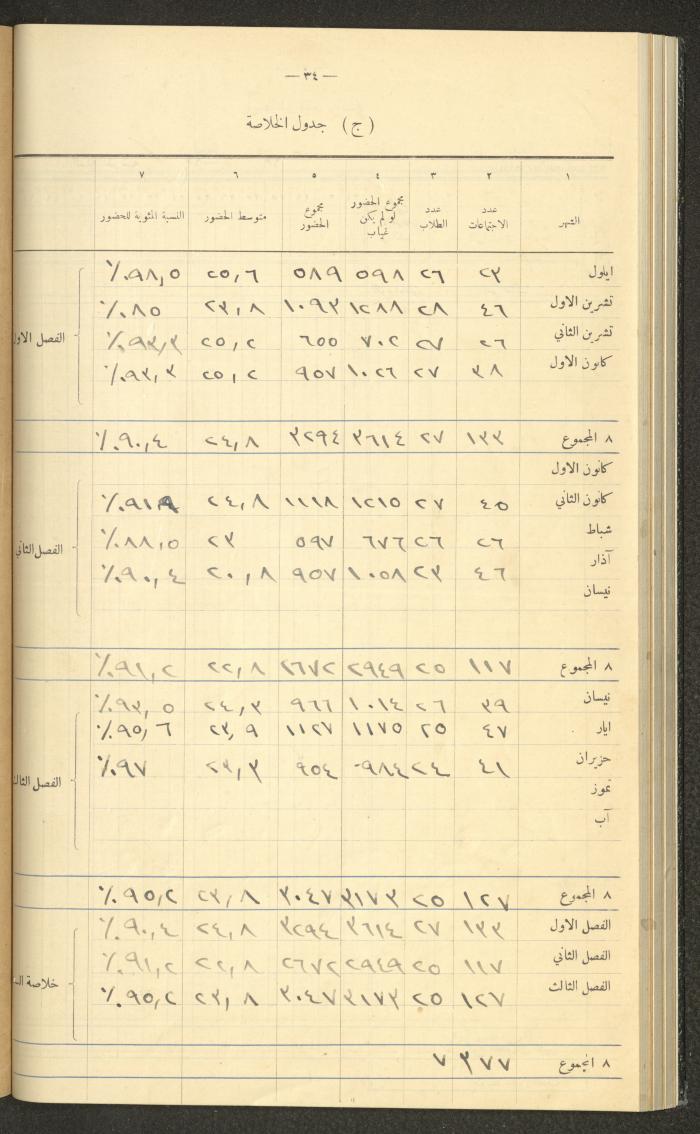 — ٣٤ —
(ج) جدول الخلاصة
١ ٢ ٣ ٤ ٥ ٦ ٧
الشهر عدد الاجتماعات عدد الطلاب مجموع الحضور لو لم يكن غياب مجموع الحضور متوسط الحضور النسبة المئوية للحضور
ايلول ٢٣ ٢٦ ٥٩٨ ٥٨٩ ٢٥,٦ ٩٨,٥٪
تشرين الاول ٤٦ ٢٨ ١٢٨٨ ١٠٩٣ ٢٣,٨ ٨٥٪
تشرين الثاني ٢٦ ٢٧ ٧٠٢ ٦٥٥ ٢٥,٢ ٩٣,٣٪
كانون الاول ٣٨ ٢٧ ١٠٢٦ ٩٥٧ ٢٥,٢ ٩٣,٣٪
الفصل الاول
٨ المجموع ١٣٣ ٢٧ ٣٦١٤ ٣٢٩٤ ٢٤,٨ ٩٠,٤٪
كانون الاول
كانون الثاني ٤٥ ٢٧ ١٢١٥ ١١١٨ ٢٤,٨ ٩١,٩٪
شباط ٢٦ ٢٦ ٦٧٦ ٥٩٧ ٢٣ ٨٨,٥٪
آذار ٤٦ ٢٣ ١٠٥٨ ٩٥٧ ٢٠,٨ ٩٠,٤٪
نيسان
الفصل الثاني
٨ المجموع ١١٧ ٢٥ ٢٩٤٩ ٢٦٧٢ ٢٢,٨ ٩١,٢٪
نيسان ٣٩ ٢٦ ١٠١٤ ٩٦٦ ٢٤,٣ ٩٣,٥٪
ايار ٤٧ ٢٥ ١١٧٥ ١١٢٧ ٢٣,٩ ٩٥,٦٪
حزيران ٤١ ٢٤ ٩٨٤ ٩٥٤ ٢٣,٣ ٩٧٪
تموز
آب
الفصل الثالث
٨ المجموع ١٢٧ ٢٥ ٣١٧٣ ٣٠٤٧ ٢٣,٨ ٩٥,٢٪
الفصل الاول ١٣٣ ٢٧ ٣٦١٤ ٣٢٩٤ ٢٤,٨ ٩٠,٤٪
الفصل الثاني ١١٧ ٢٥ ٢٩٤٩ ٢٦٧٢ ٢٢,٨ ٩١,٢٪
الفصل الثالث ١٢٧ ٢٥ ٣١٧٣ ٣٠٤٧ ٢٣,٨ ٩٥,٢٪
خلاصة
٨ المجموع ٣٧٧ ٧